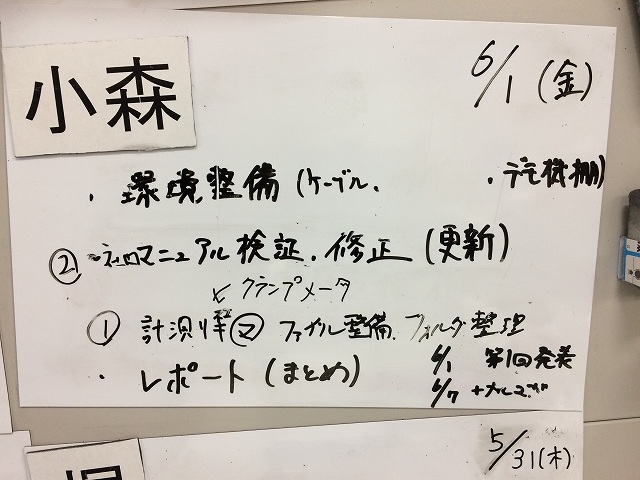 小森
6/1 (金)
・環境整備 (ケーブル、 ・デモ機棚)
② マニュアル検証、修正 (更新)
クランプメータ
① 計測 ファイル整備、フォルダ整理
・レポート (まとめ)
6/1 第1回発表
6/7
5/31(木)